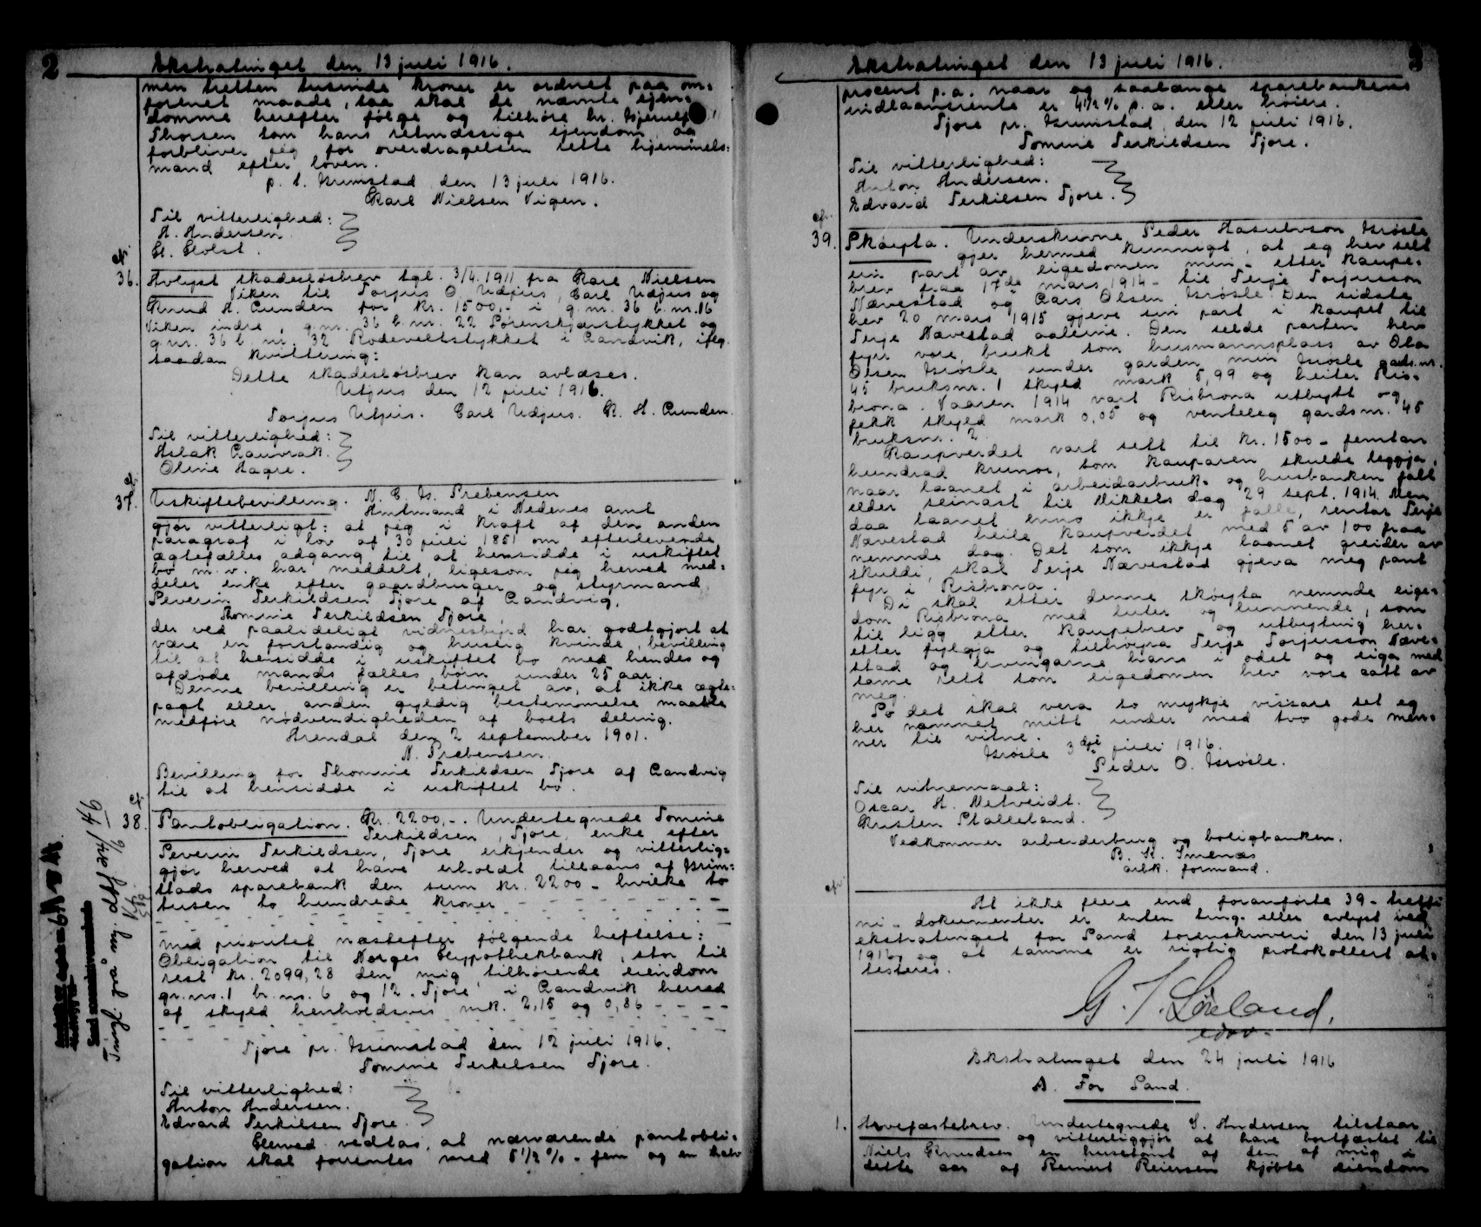 2 Ekstratinget den 13 juli 1916.
men tretten tusinde kroner er ordnet paa om-
forenet maade, saa skal de nævnte eien-
domme herefter følge og tilhøre hr.
Thorsen som hans retmæssige eiendom, og
forbliver jeg for overdragelsen dette hjemmels-
mand efter loven.
p. t. Grimstad, den 13 juli 1916.
Karl Nielsen Vigen.
Til vitterlighed:
A. Andersen.
36. Avlyst skadesløsbrev tgl. 3/4 1911 fra Karl Nielsen
Viken til Torjus O. Udjus, Carl Udjus og
Knud H. Lunden for kr. 1500,- i g.nr. 36 b.nr. 16
Viken indre, g.nr. 36 b.nr. 22 Sørenskjærstykket og
g.nr. 36 b.nr. 32 Rodeveltstykket i Landvik, iflg.
saadan kvittering:
Dette skadesløsbrev kan avlæses.
Utjus den 12 juli 1916.
Torjus Utjus. Carl Udjus. K. H. Lunden.
Til vitterlighed:
Aslak
Olene Hagre.
37. Uskiftebevilling. N. C. G. Prebensen
Amtmand i Nedenes amt
gjør vitterligt: at jeg i kraft af den anden
paragraf i lov af 30 juli 1851 om efterlevende
ægtefælles adgang til at hensidde i uskiftet
bo m.v. har meddelt, ligesom jeg herved med-
deler enke efter gaardbruger og styrmand
Severin Terkildsen Tjore af Landvig,
Tomine Terkildsen Tjore,
der ved paalideligt vidnesbyrd har godtgjort at
være en forstandig og huslig kvinde, bevilling
til at hensidde i uskiftet bo med hendes og
afdøde mands fælles børn under 25 aar.
Denne bevilling er betinget av, at ikke ægte-
pagt eller anden gyldig bestemmelse maatte
medføre nødvendigheden af boets deling.
Arendal den 2 september 1901.
N. Prebensen.
Bevilling for Thomine Terkildsen Tjore af Landvig
til at hensidde i uskiftet bo.
38. Pantobligation. Kr. 2200,-. Undertegnede Tomine
Terkildsen, Tjore, enke efter
Severin Terkildsen, Tjore erkjender og vitterlig-
gjør herved at have erholdt tillaans af Grim-
stads sparebank den sum kr. 2200 - hvilke to
tusen to hundrede kroner
med prioritet næstefter følgende heftelse:
Obligation til Norges Hypothekbank, stor til
rest kr. 2099,28 den mig tilhørende eiendom
gr.nr. 1 br.nr. 6 og 12. Tjore i Landvik herred
af skyld henholdsvis mrk. 2,15 og 0,86
Tjore pr. Grimstad den 12 juli 1916.
Tomine Terkelsen Tjore.
Til vitterlighed:
Anton Andersen.
Edvard Terkilsen Tjore.
Herved vedtas, at nærværende pantobli-
gation skal forrentes med 5 1/2 % - fem og en halv
Ekstratinget den 13 juli 1916. 3
procent p.a. naar og saalænge sparebankens
indlaansrente er 4 1/2 % p.a. eller høiere.
Tjore pr. Grimstad, den 12 juli 1916.
Tomine Terkildsen Tjore.
Til vitterlighed:
Anton Andersen.
Edvard Terkilsen Tjore.
39. Skøyta. Underskrivne Peder Grøsle
gjer hermed kunnugt, at eg hev selt
ein part av eigedomen min etter kaupe-
brev fraa 17de mars 1914 - til Terje Torjusson
Nævestad og Lars Olsen Grøsle. Den sidste
hev 20 mars 1915 gjeve sin part i kaupet til
Terje Nævestad aaleine. Den selde parten hev
fyr vore brukt som husmannsplass av Ola
Olsen Grøsle under garden min Grøsle gards.nr.
45 bruksnr. 1 skyld mark 5,99 og heiter Ris-
brona. Vaaren 1914 vart Risbrona utbytt og
fekk skyld mark 0,05 og venteleg gardsnr. 45
bruksnr. 2.
Kaupverdet vart sett til kr. 1500 - femtan
hundrad krunor, som kauparen skulde leggja,
naar laanet i arbeidarbruk- og husbanken fall
elder seinast til Mikkels dag 29 sept. 1914. Men
daa laanet enno ikkje er falle, rentar Terje
Nævestad heile kaupverdet med 5 av 100 fraa
nemnde dag. Det som ikkje laanet greider av
skuldi, skal Terje Nævestad gjeva meg pant
fyr i Risbrona.
Di skal etter denne skøyta nemnde eige-
dom Risbrona med luter og lunnende, som
til ligg etter kaupebrev og utbyting her-
etter fylgja og tilhøyra Terje Torjusson Næve-
stad og ervingarne hans i odel og eiga med
same rett som eigedomen hev vore aatt av
meg.
So det skal vera so mykje vissare set eg
her nammet mitt under med tvo gode men-
ner til vitne.
Grøsle 3dje juli 1916.
Peder O. Grøsle.
Til vitnemaal:
Oscar H. Metveidt.
Kristen Stalleland.
Vedkommer arbeiderbrug og boligbanken.
B. K. Smenæs
arbk. formand.
At ikke flere end foranførte 39 - tretti
ni - dokumenter er enten ting- eller avlyst ved
ekstratinget for Sand sorenskriveri den 13 juli
1916, og at samme er rigtig protokollert at-
testeres.
G. T. Lieland,
edsv.
Ekstratinget den 24 juli 1916
A. For Sand.
1. Arvefæstebrev. Undertegnede S. Andersen tilstaar
og vitterliggjør at have bortfæstet til
Niels Knudsen en hustomt af den af mig i
dette aar af Reinert Reiersen kjøbte eiendom